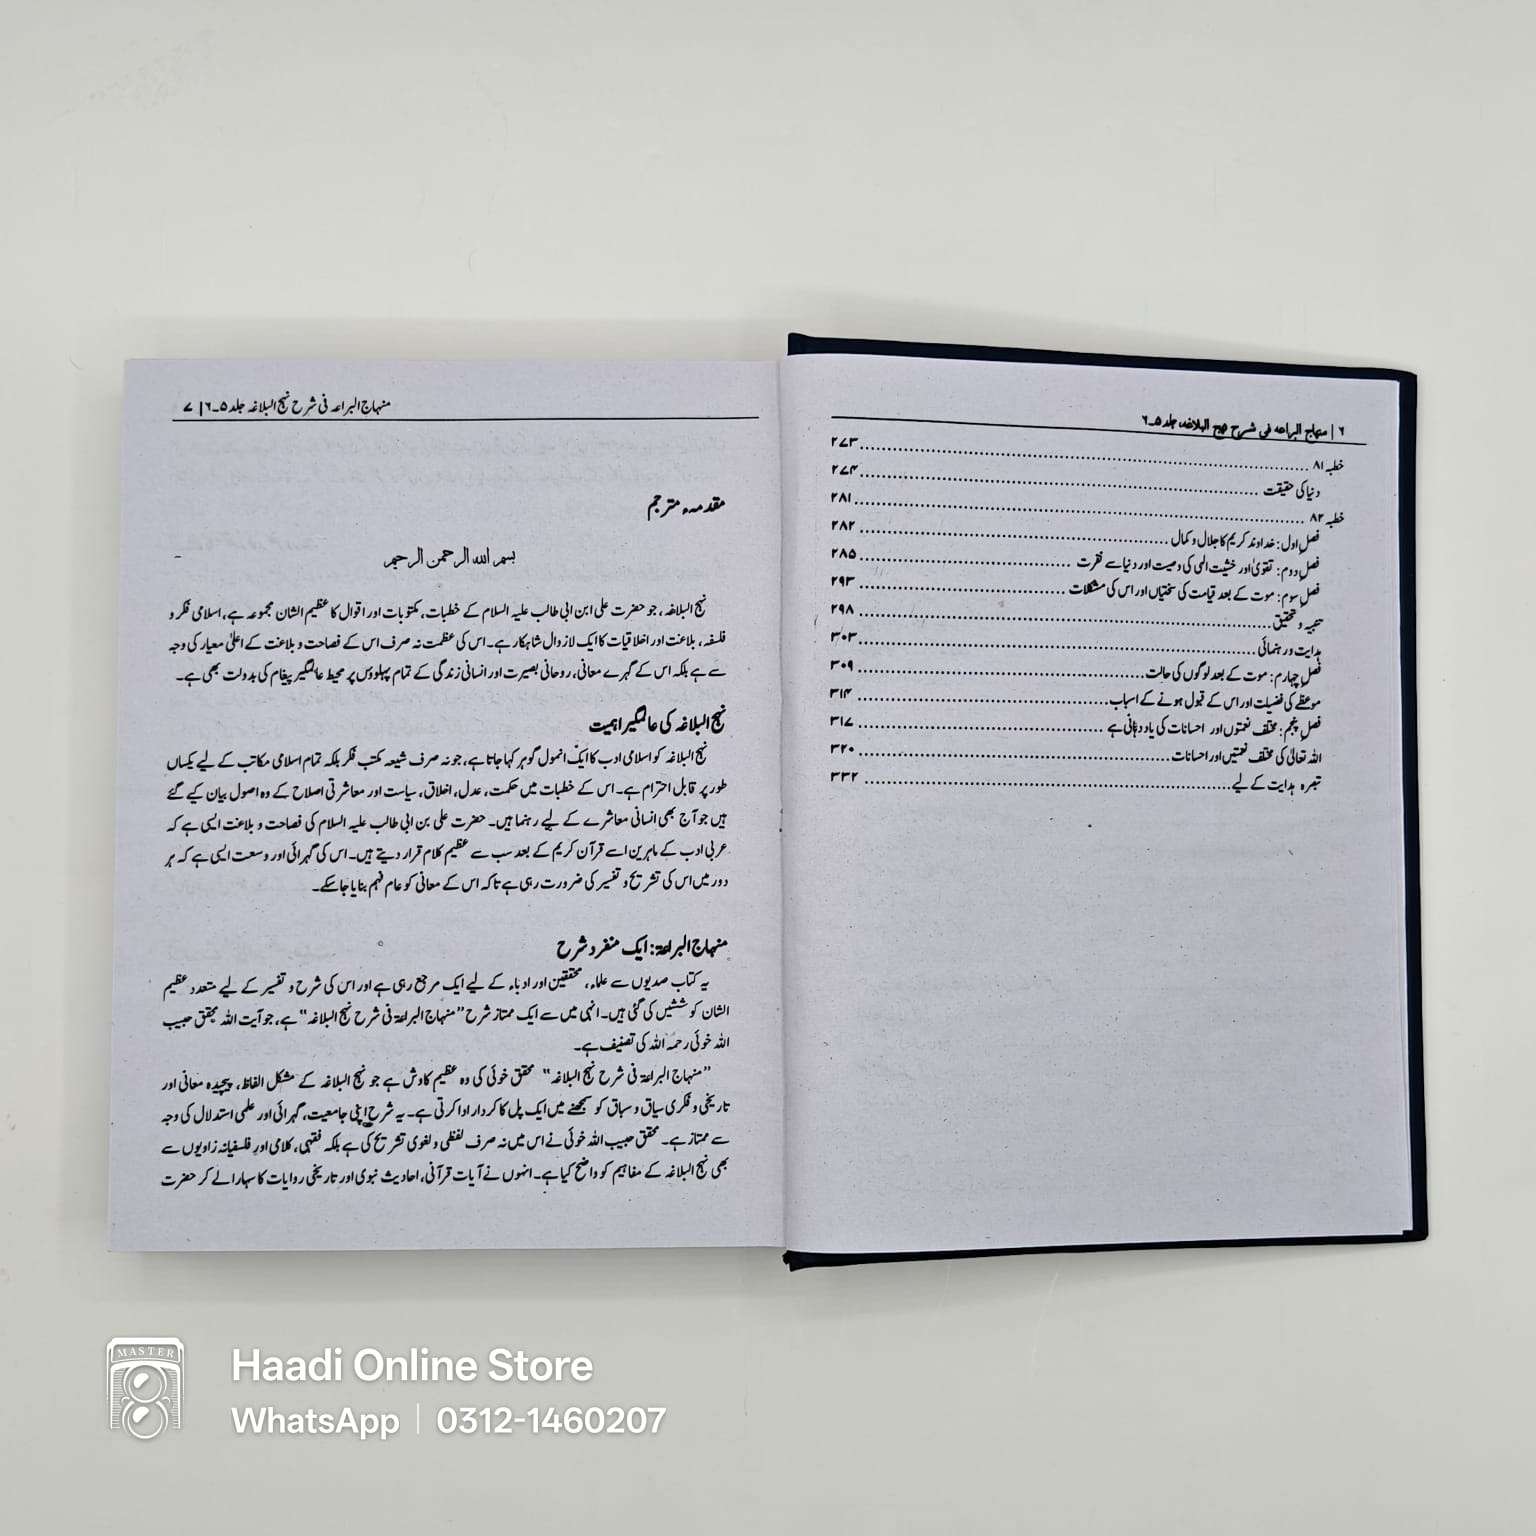 ۶ | منہاج البراعہ فی شرح نہج البلاغہ جلد ۵۔۶
خطبہ ۸۱ ........ ۲۷۳
دنیا کی حقیقت ........ ۲۷۴
خطبہ ۸۲ ........ ۲۸۱
فصل اول: خداوند کریم کا جلال و کمال ........ ۲۸۲
فصل دوم: تقویٰ اور خشیت الٰہی کی وصیت اور دنیا سے نفرت ........ ۲۸۵
فصل سوم: موت کے بعد قیامت کی سختیاں اور اس کی مشکلات ........ ۲۹۳
تنبیہ و تحقیق ........ ۲۹۸
ہدایت و رہنمائی ........ ۳۰۳
فصل چہارم: موت کے بعد لوگوں کی حالت ........ ۳۰۹
موعظے کی فضیلت اور اس کے قبول ہونے کے اسباب ........ ۳۱۴
فصل پنجم: مختلف نعمتوں اور احسانات کی یاد دہانی ہے ........ ۳۱۷
اللہ تعالیٰ کی مختلف نعمتیں اور احسانات ........ ۳۲۰
تبصرہ ہدایت کے لیے ........ ۳۳۲
منہاج البراعہ فی شرح نہج البلاغہ جلد ۵۔۶ | ۷
مقدمہء مترجم
بسم اللہ الرحمن الرحیم
نہج البلاغہ، جو حضرت علی ابن ابی طالب علیہ السلام کے خطبات، مکتوبات اور اقوال کا عظیم الشان مجموعہ ہے، اسلامی فکر و
فلسفہ، بلاغت اور اخلاقیات کا ایک لازوال شاہکار ہے۔ اس کی عظمت نہ صرف اس کے فصاحت و بلاغت کے اعلیٰ معیار کی وجہ
سے ہے بلکہ اس کے گہرے معانی، روحانی بصیرت اور انسانی زندگی کے تمام پہلوؤں پر محیط عالمگیر پیغام کی بدولت بھی ہے۔
نہج البلاغہ کی عالمگیر اہمیت
نہج البلاغہ کو اسلامی ادب کا ایک انمول گوہر کہا جاتا ہے، جو نہ صرف شیعہ مکتب فکر بلکہ تمام اسلامی مکاتب کے لیے یکساں
طور پر قابل احترام ہے۔ اس کے خطبات میں حکمت، عدل، اخلاق، سیاست اور معاشرتی اصلاح کے وہ اصول بیان کیے گئے
ہیں جو آج بھی انسانی معاشرے کے لیے رہنما ہیں۔ حضرت علی بن ابی طالب علیہ السلام کی فصاحت و بلاغت ایسی ہے کہ
عربی ادب کے ماہرین اسے قرآن کریم کے بعد سب سے عظیم کلام قرار دیتے ہیں۔ اس کی گہرائی اور وسعت ایسی ہے کہ ہر
دور میں اس کی تشریح و تفسیر کی ضرورت رہی ہے تاکہ اس کے معانی کو عام فہم بنایا جا سکے۔
منہاج البراعۃ: ایک منفرد شرح
یہ کتاب صدیوں سے علماء، محققین اور ادباء کے لیے ایک مرجع رہی ہے اور اس کی شرح و تفسیر کے لیے متعدد عظیم
الشان کوششیں کی گئی ہیں۔ انہی میں سے ایک ممتاز شرح "منہاج البراعۃ فی شرح نہج البلاغہ" ہے، جو آیت اللہ محقق حبیب
اللہ خوئی رحمہ اللہ کی تصنیف ہے۔
"منہاج البراعۃ فی شرح نہج البلاغہ" محقق خوئی کی وہ عظیم کاوش ہے جو نہج البلاغہ کے مشکل الفاظ، پیچیدہ معانی اور
تاریخی و فکری سیاق و سباق کو سمجھنے میں ایک پل کا کردار ادا کرتی ہے۔ یہ شرح اپنی جامعیت، گہرائی اور علمی استدلال کی وجہ
سے ممتاز ہے۔ محقق حبیب اللہ خوئی نے اس میں نہ صرف لفظی و لغوی تشریح کی ہے بلکہ فقہی، کلامی اور فلسفیانہ زاویوں سے
بھی نہج البلاغہ کے مفاہیم کو واضح کیا ہے۔ انہوں نے آیات قرآنی، احادیث نبوی اور تاریخی روایات کا سہارا لے کر حضرت
MASTER
Haadi Online Store
WhatsApp | 0312-1460207